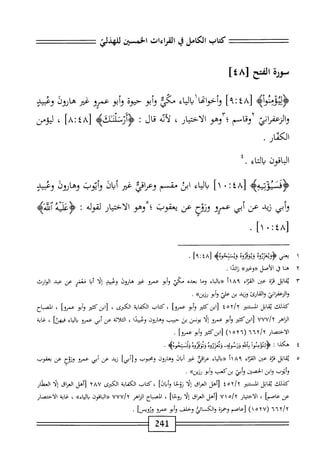 كتاب الكامل في القراءات الخمسين للهذليّ
سورة الفتح [٤٨]
﴿لِيُؤْمِنُواْ﴾ [٩:٤٨] وأخواتها ١ بالياء مكّيٌّ وأبو حيوة وأبو عمرو غير هارونَ وعُبيدٍ
والزعفرانيّ ٢ وقاسم ٣؛ وهو الاختيار ، لأنّه قال : ﴿أَرْسَلْنَٰكَ﴾ [٨:٤٨] ، ليؤمن
الكفّار .
الباقون بالتاء .٤
﴿فَسَيُؤْتِيهِ﴾ [١٠:٤٨] بالياء ابنُ مقسم وعراقيٌّ غير أبانَ وأيّوبَ وهارونَ وعُبيدٍ
وأبي زيد عن أبي عمرو ورَوْحٍ عن يعقوبَ ؛٥ وهو الاختيار لقوله : ﴿عَلَيْهُ ٱللَّهَ﴾
[١٠:٤٨] .
١ يعني ﴿وَيُعَزِّرُوهُ وَيُوَقِّرُوهُ وَيُسَبِّحُوهُ﴾ [٩:٤٨] .
٢ هنا في الأصل «وغيره» زائدًا .
٣ يُقابل قرّة عين القرّاء ١٨٩أ «بالياء وما بعده مكّيٌّ وأبو عمرو غير هارونَ وعُبيدٍ إلّا أبا مَعْمَرٍ عن عبد الوارث
والزعفرانيّ والقارئ وزيد بن عليّ وأبو رزين» .
كذلك يُقابل المستنير ٤٥٢/٢ [ابن كثير وأبو عمرو] ، كتاب الكفاية الكبرى ، [ابن كثير وأبو عمرو] ، المصباح
الزاهر ٧٧٧/٢ [ابن كثير وأبو عمرو إلّا يونسَ بن حبيب وهارونَ وعُبيدًا ، الثلاثة عن أبي عمرو بالياء فيهنّ] ، غاية
الاختصار ٦٦٢/٢ (١٥٢٦) [ابن كثير وأبو عمرو] .
٤ هكذا : ﴿لِتُؤْمِنُواْ بِٱللَّهِ وَرَسُولِهِۦ وَتُعَزِّرُوهُ وَتُوَقِّرُوهُ وَتُسَبِّحُوهُ﴾ .
٥ يُقابل قرّة عين القرّاء ١٨٩أ «بالياء عراقيٌّ غير أبان وهارونَ ومحبوب و[أبي] زيد عن أبي عمرو وروْحٍ عن يعقوب
وأيّوب وابن الحصين وأبيّ بن كعب وأبو رزين» .
كذلك يُقابل المستنير ٤٥٢/٢ [أهل العراق إلّا رَوْحًا وأبان] ، كتاب الكفاية الكبرى ٢٨٧ [أهل العراق إلّا العطّار
عن عاصم] ، الاختيار ٧١٥/٢ [أهل العراق إلّا روحًا] ، المصباح الزاهر ٧٧٧/٢ «الباقون بالياء» ، غاية الاختصار
٦٦٢/٢ (١٥٢٧) [عاصم وحمزة والكسائيّ وخلف وأبو عمرو ورُويس] .
241